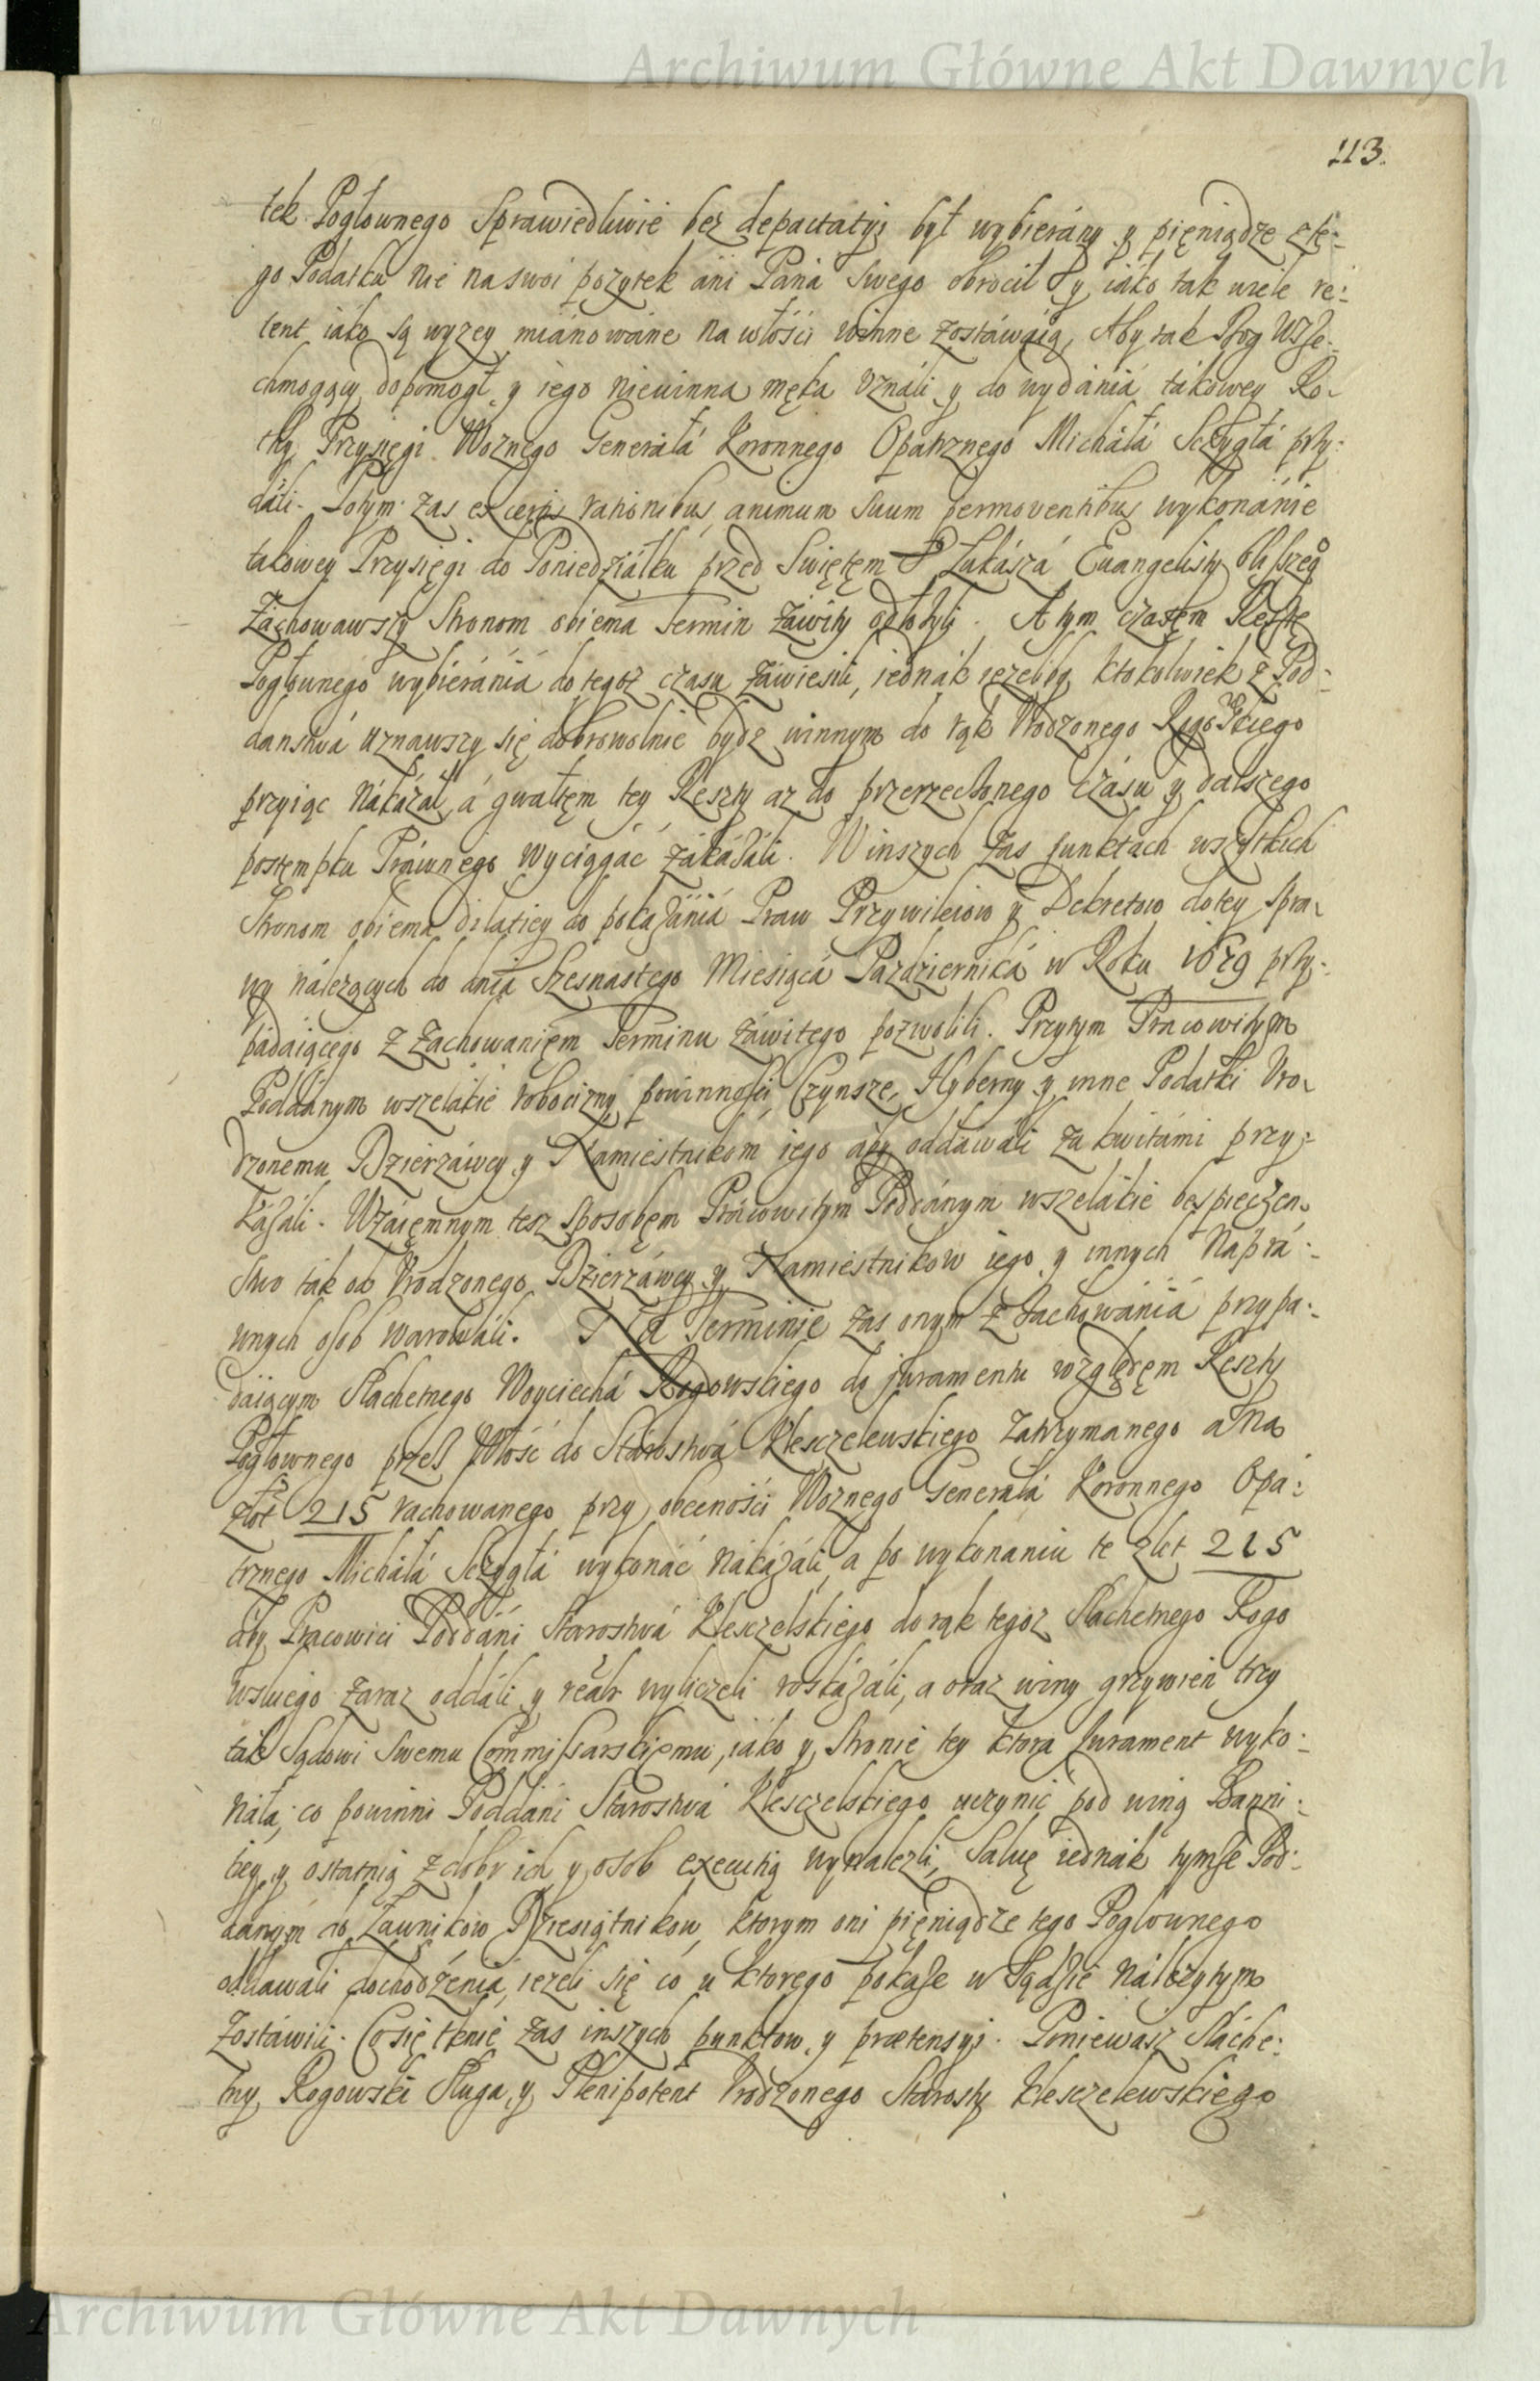 Archiwum Główne Akt Dawnych
113.
tek Pogłownego Sprawiedliwie bez depactatyi był wybierány y pięniądze z te-
go Podatku nie na swoi pozytek áni Paná Swego obrocił y iáko tak wiele re-
tent iáko są wyzey miánowáne na włośći winne zostáwáią, Aby tak Bog Wsze-
chmogący dopomogł y iego niewinna męka Uználi y do wydániá tákowey Ro-
thy Przysięgi Woznego Generałá Koronnego Opátrznego Michałá Sczygłá przy-
dáli. Potym zas ex certis rationibus animum suum permoventibus wykonánie
takowey Przysięgi do Poniedziałku przed Swiętęm S Łukászá Euangelisty blisszego
Záchowawszy Stronom obiema Termin záwity odłozyli. A tym czasęm Resztę
Pogłownego wybierániá do tegoz czasu záwiesili, iednák iezeliby ktokolwiek z Pod-
danstwá uznawszy się dobrowolnie bydz winnym do rąk Urodzonego Rogoskiego
przyiąc nákazał, á gwałtęm tey Reszty az do przerzeczonego czásu y dalszego
postęmpku Práwnego wyciągáć zákázáli. W inszych zas punktách wszytkich
Stronom obiema dilatiey do pokazániá Praw Przywileiow y Dekretow do tey Spra-
wy nálezących do dniá Szesnastego Miesiącá Pazdzierniká w Roku 1679 przy-
pádaiącego z Zachowanięm Terminu záwitego pozwolili. Przytym Pracowitym
Poddánym wszelákie robocizny powinnosci Czynsze, Hyberny y inne Podatki Uro-
dzonemu Dzierzáwcy y Namiestnikom iego áby oddawáli za kwitámi przy-
kázáli. Wzáięmnym tesz sposobęm Prácowitym Poddánym wszelákie bespieczen-
stwo ták od Urodzonego Dzierzáwcy y Namiestnikow iego y innych Naprá-
wnych osob warowáli. Ná Terminie zas onym z záchowániá przypa-
dáiącym Slachetnego Woyciechá Rogowskiego do juramentu względęm Reszty
Pogłownego przesz Włość do Stárostwá Kleszczelewskiego zatrzymanego a Na
złot 215 rachowanego przy obecnośći Woznego Generałá Koronnego Opá-
trznego Michałá Sczygłá wykonáć nákázáli, a po wykonániu te złot 215
áby Pracowici Poddáni Starostwá Kleszczelskiego do rąk tegoz Slachetnego Rogo
wskiego zaraz oddáli y realr wyliczeli roskázáli, a oraz winy grzywien trzy
tak Sądowi Swemu Commissarskiemu, iáko y Stronie tey ktora Jurament wyko-
náła, co powinni Poddáni Starostwá Kleszczelskiego uczynić pod winą Banni-
tiey y ostatnią z dobr ich y osob executią wynalezli, Salwę iednák tymsze Pod-
danym do Ławnikow Dziesiątnikow, ktorym oni pięniądze tego Pogłownego
oddawali dochodzenia, iezeli się co u ktorego pokasze w Sądzie Nálezytym
zostáwili. Co się tknie zas inszych punktow y prætensyi. Poniewasz Sláche-
tny Rogowski Sługa y Plenipotent Urodzonego Stárosty Kleszczelewskiego
Archiwum Główne Akt Dawnych